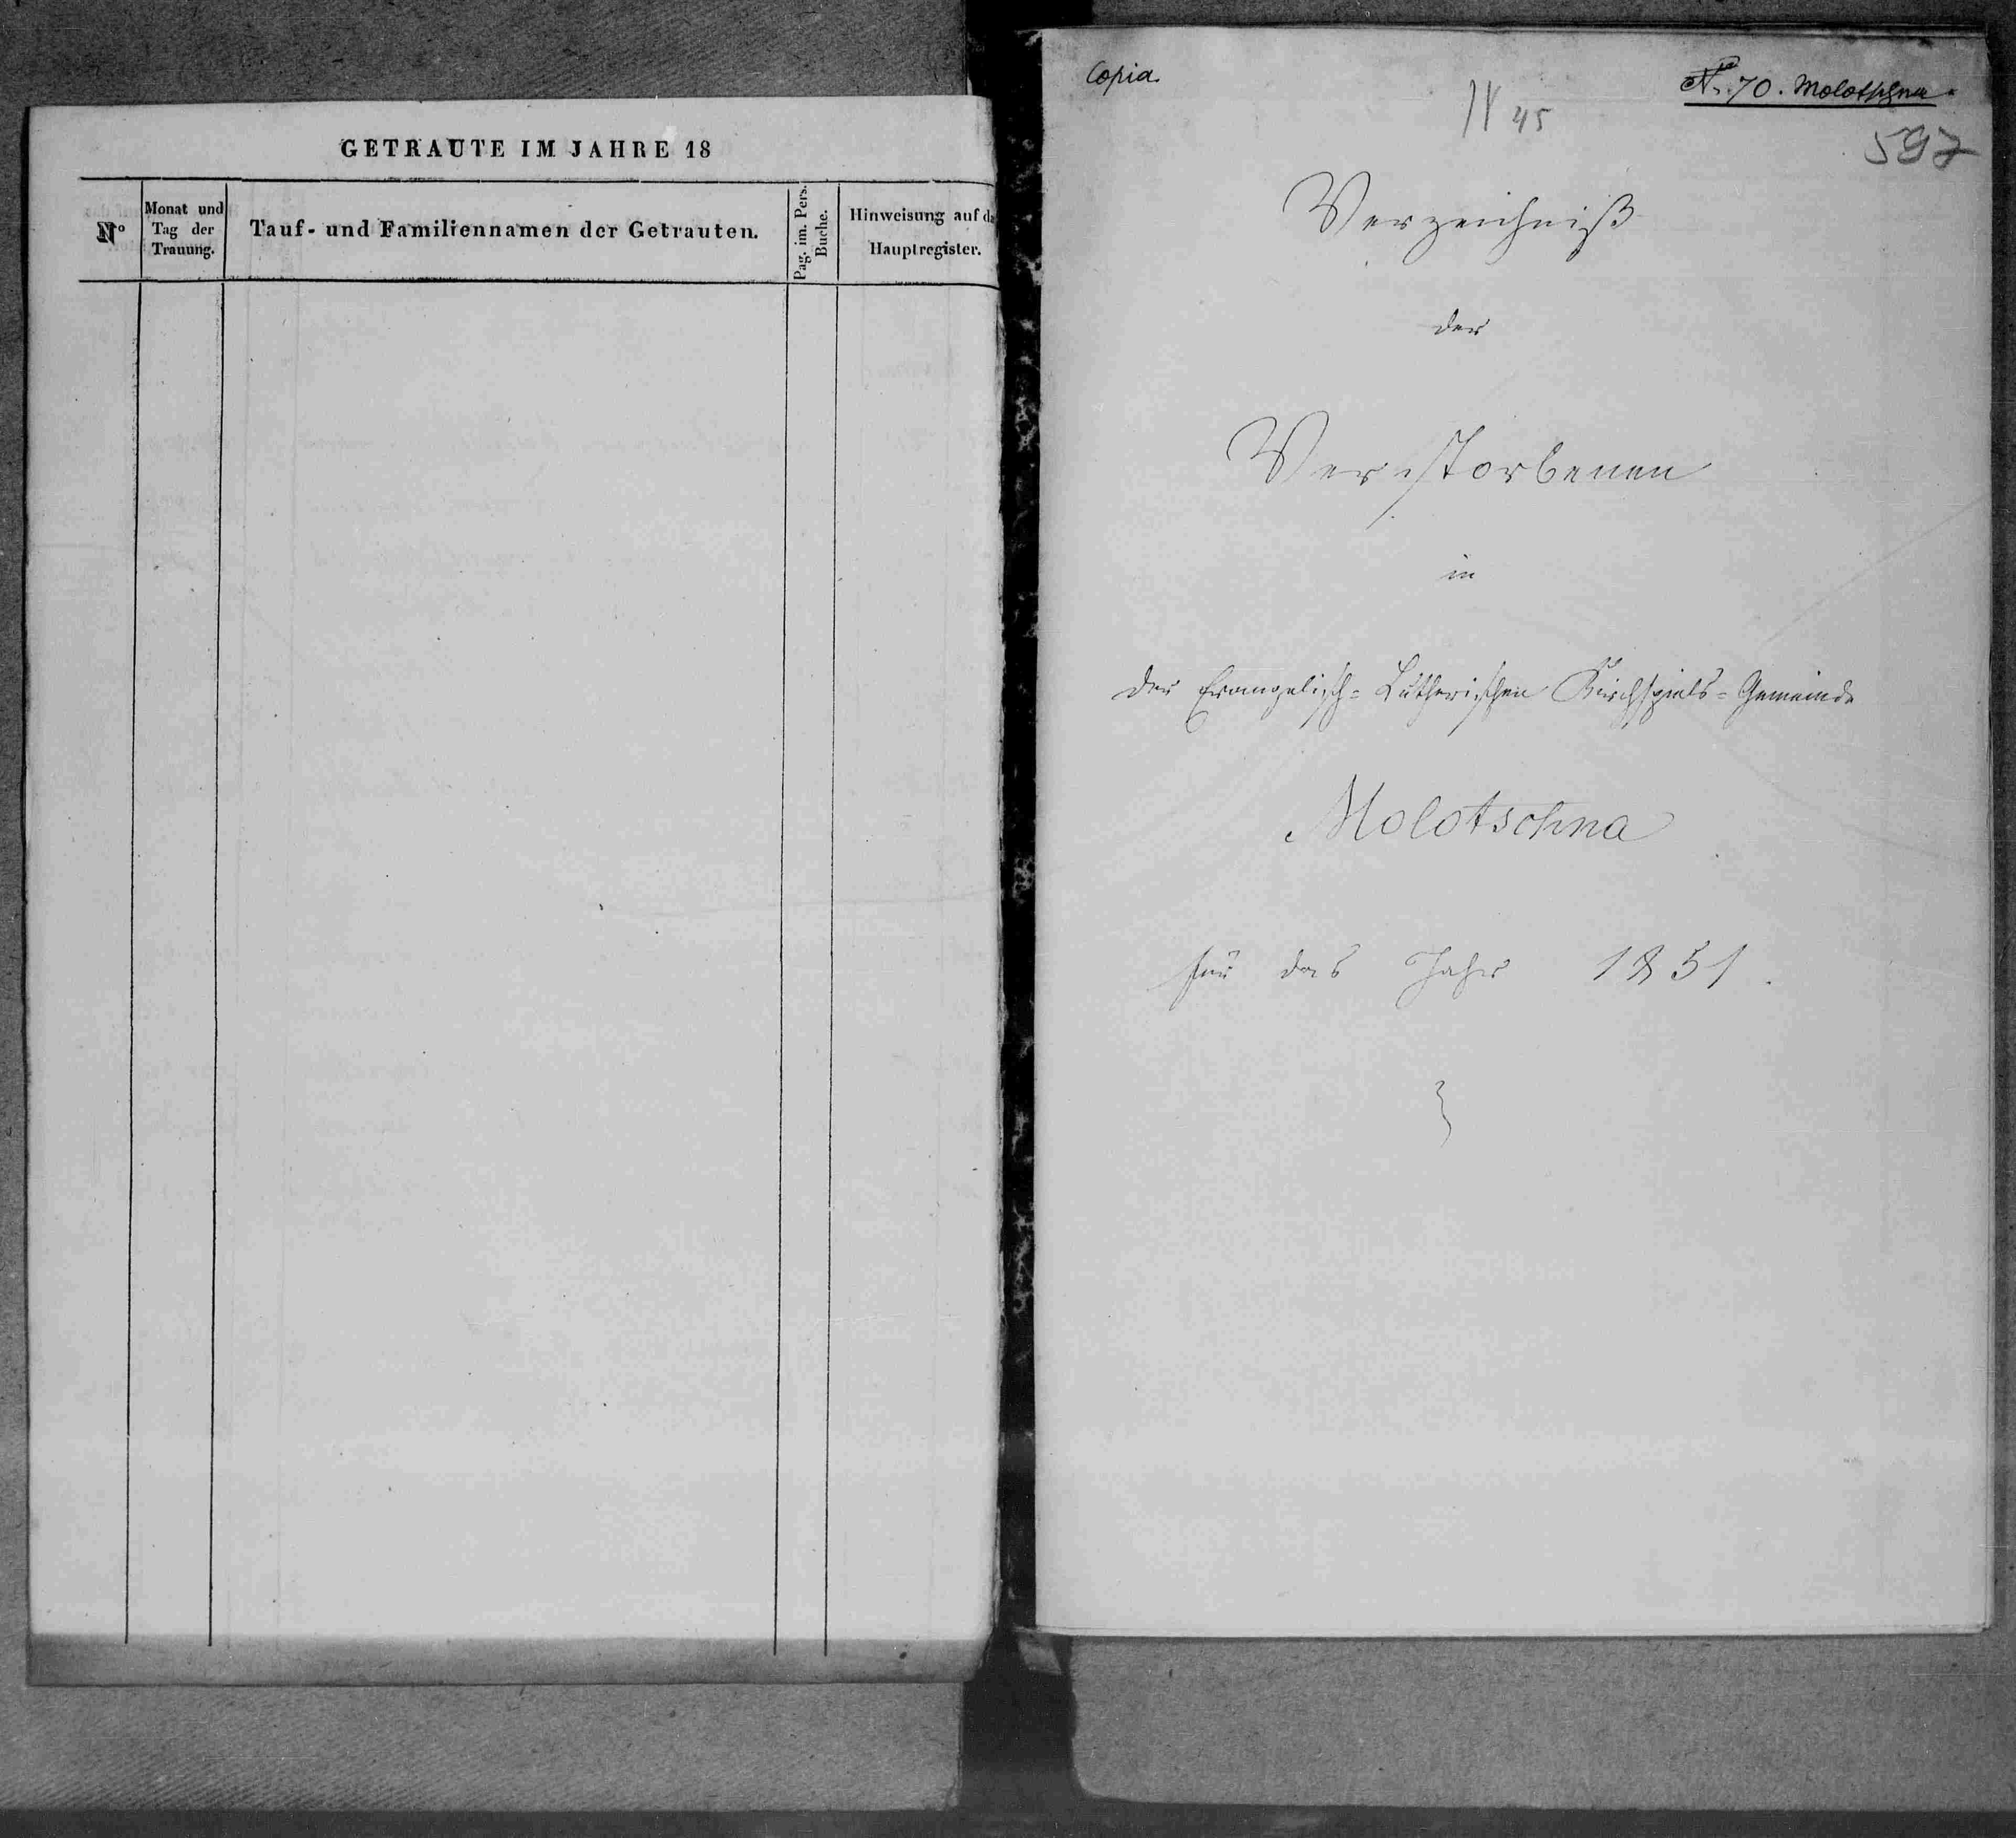 GETRAUTE IM JAHRE 18
No
Monat und
Tag der
Trauung.
Tauf- und Familiennamen der Getrauten.
Pag. im. Pers.
Buche.
Hinweisung auf
Hauptregister.
Copia.
No. 70. Molotschna.
45
597
Verzeichniß
der
Verstorbenen
in
der Evangelisch-Lutherischen Kirchspiels-Gemeinde
Molotschna
für das Jahr 1851.